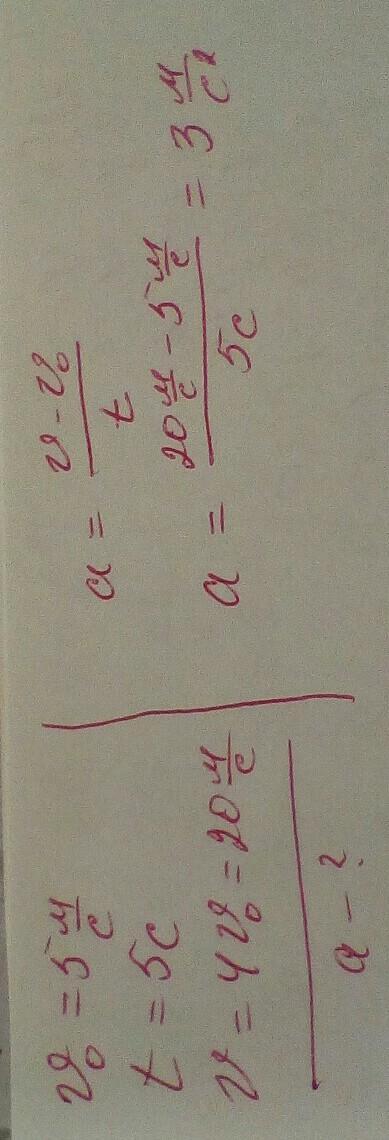 v₀ = 5 м/с
t = 5с
v = 4v₀ = 20 м/с
a - ?
a = (v - v₀)/t
a = (20 м/с - 5 м/с)/5с = 3 м/с²